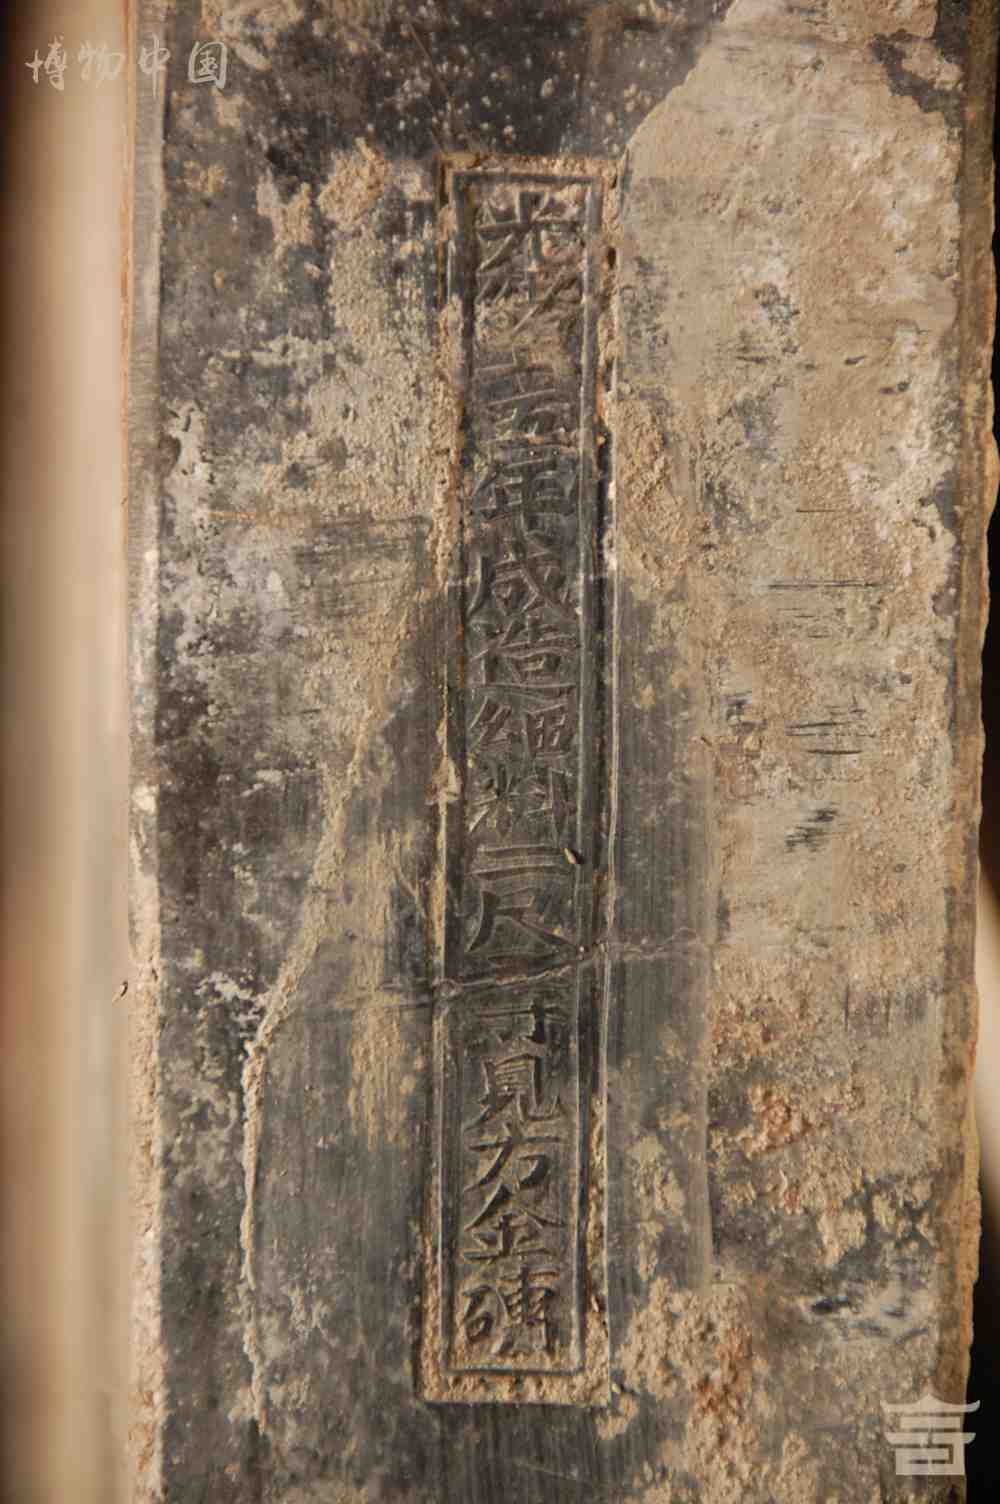 博物中国
光緒十五年成造細料二尺二寸見方金磚